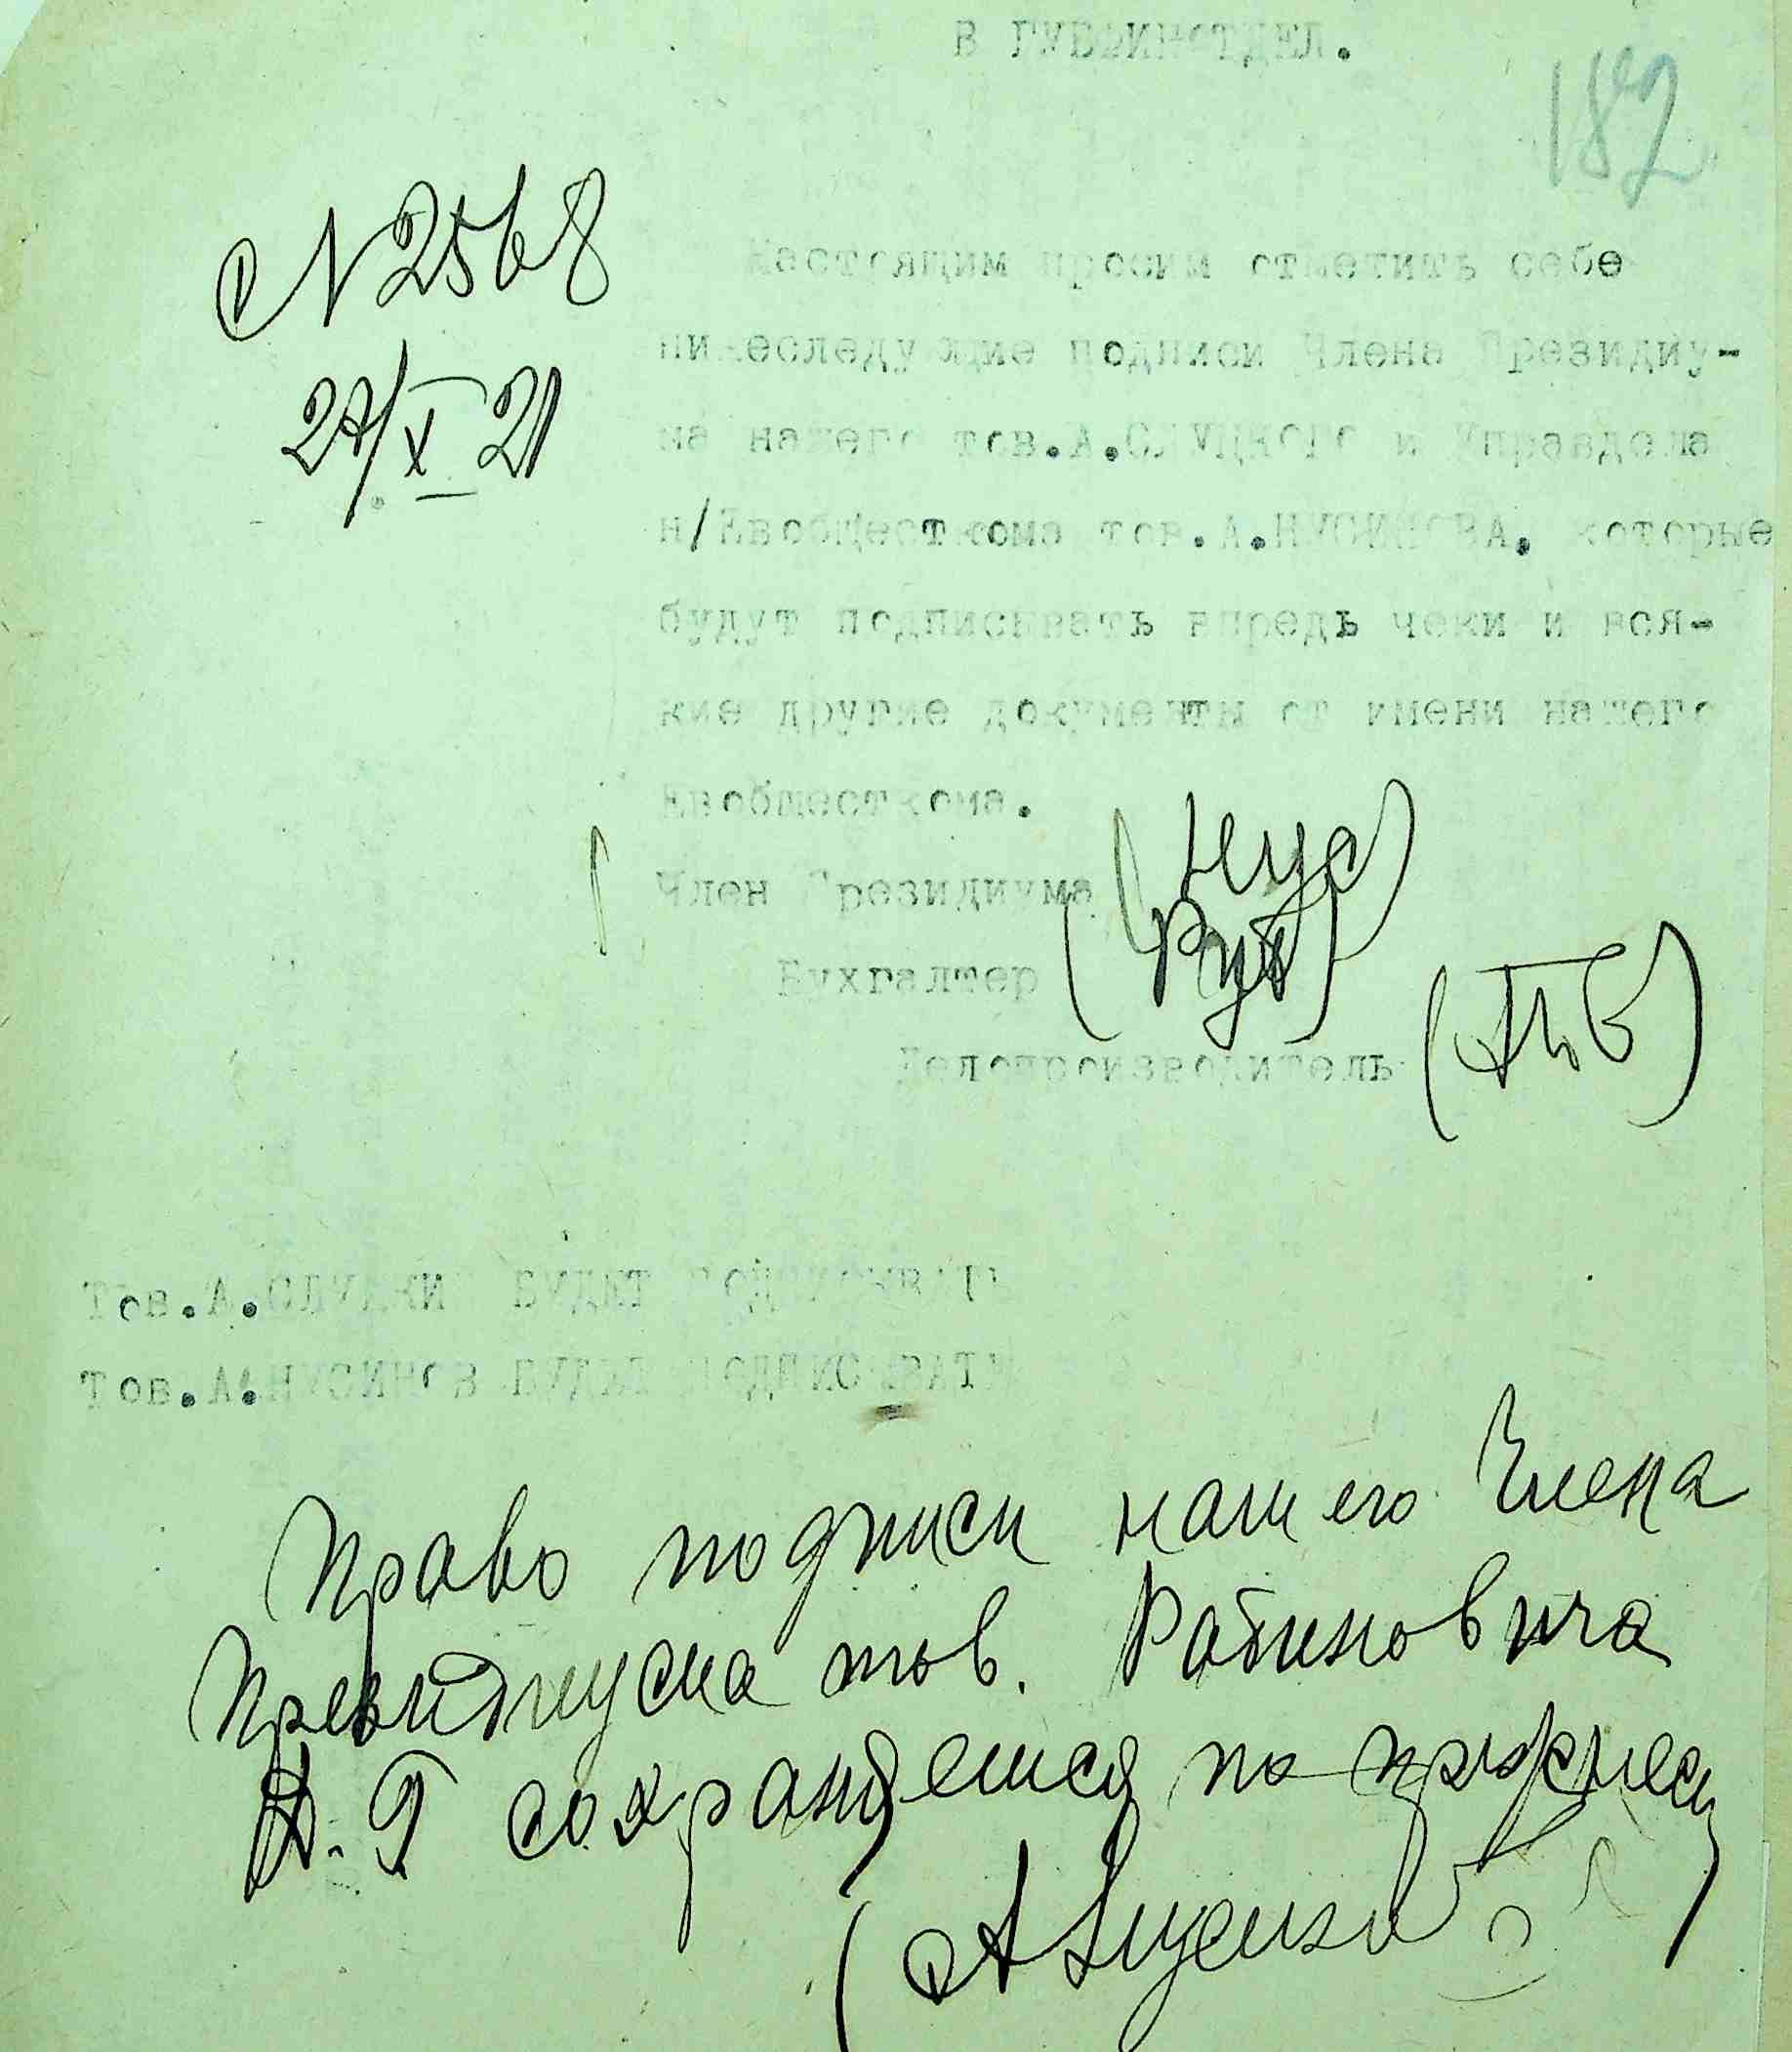 В ГУБФИНОТДЕЛ.
182
№ 2568
27/X 21
Настоящим просим отметить себе
нижеследующие подписи Члена Президиу-
ма нашего тов.А.СЛУЦКОГО и Управдела
н/Евобщесткома тов.А.НУСИНОВА, которые
будут подписывать впредь чеки и вся-
кие другие документы от имени нашего
Евобщесткома.
Член Президиума (Нус)
Бухгалтер (Рут)
Делопроизводитель
Тов.А.СЛУЦКИЙ БУДЕТ ПОДПИСЫВАТЬ
Тов.А.НУСИНОВ БУДЕТ ПОДПИСЫВАТЬ
Право подписи нашего Члена
Президиума тов. Рабиновича
сохраняется по прежнему